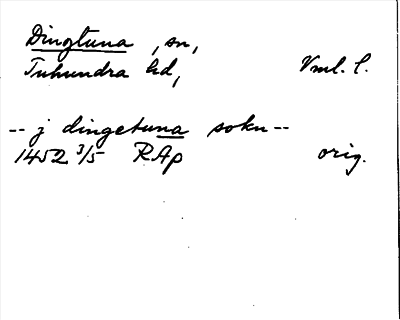 Dingtuna, sn,
Tuhundra hd, Vml. l.
-- j dingetuna sokn --
1452 3/5 RAp orig.